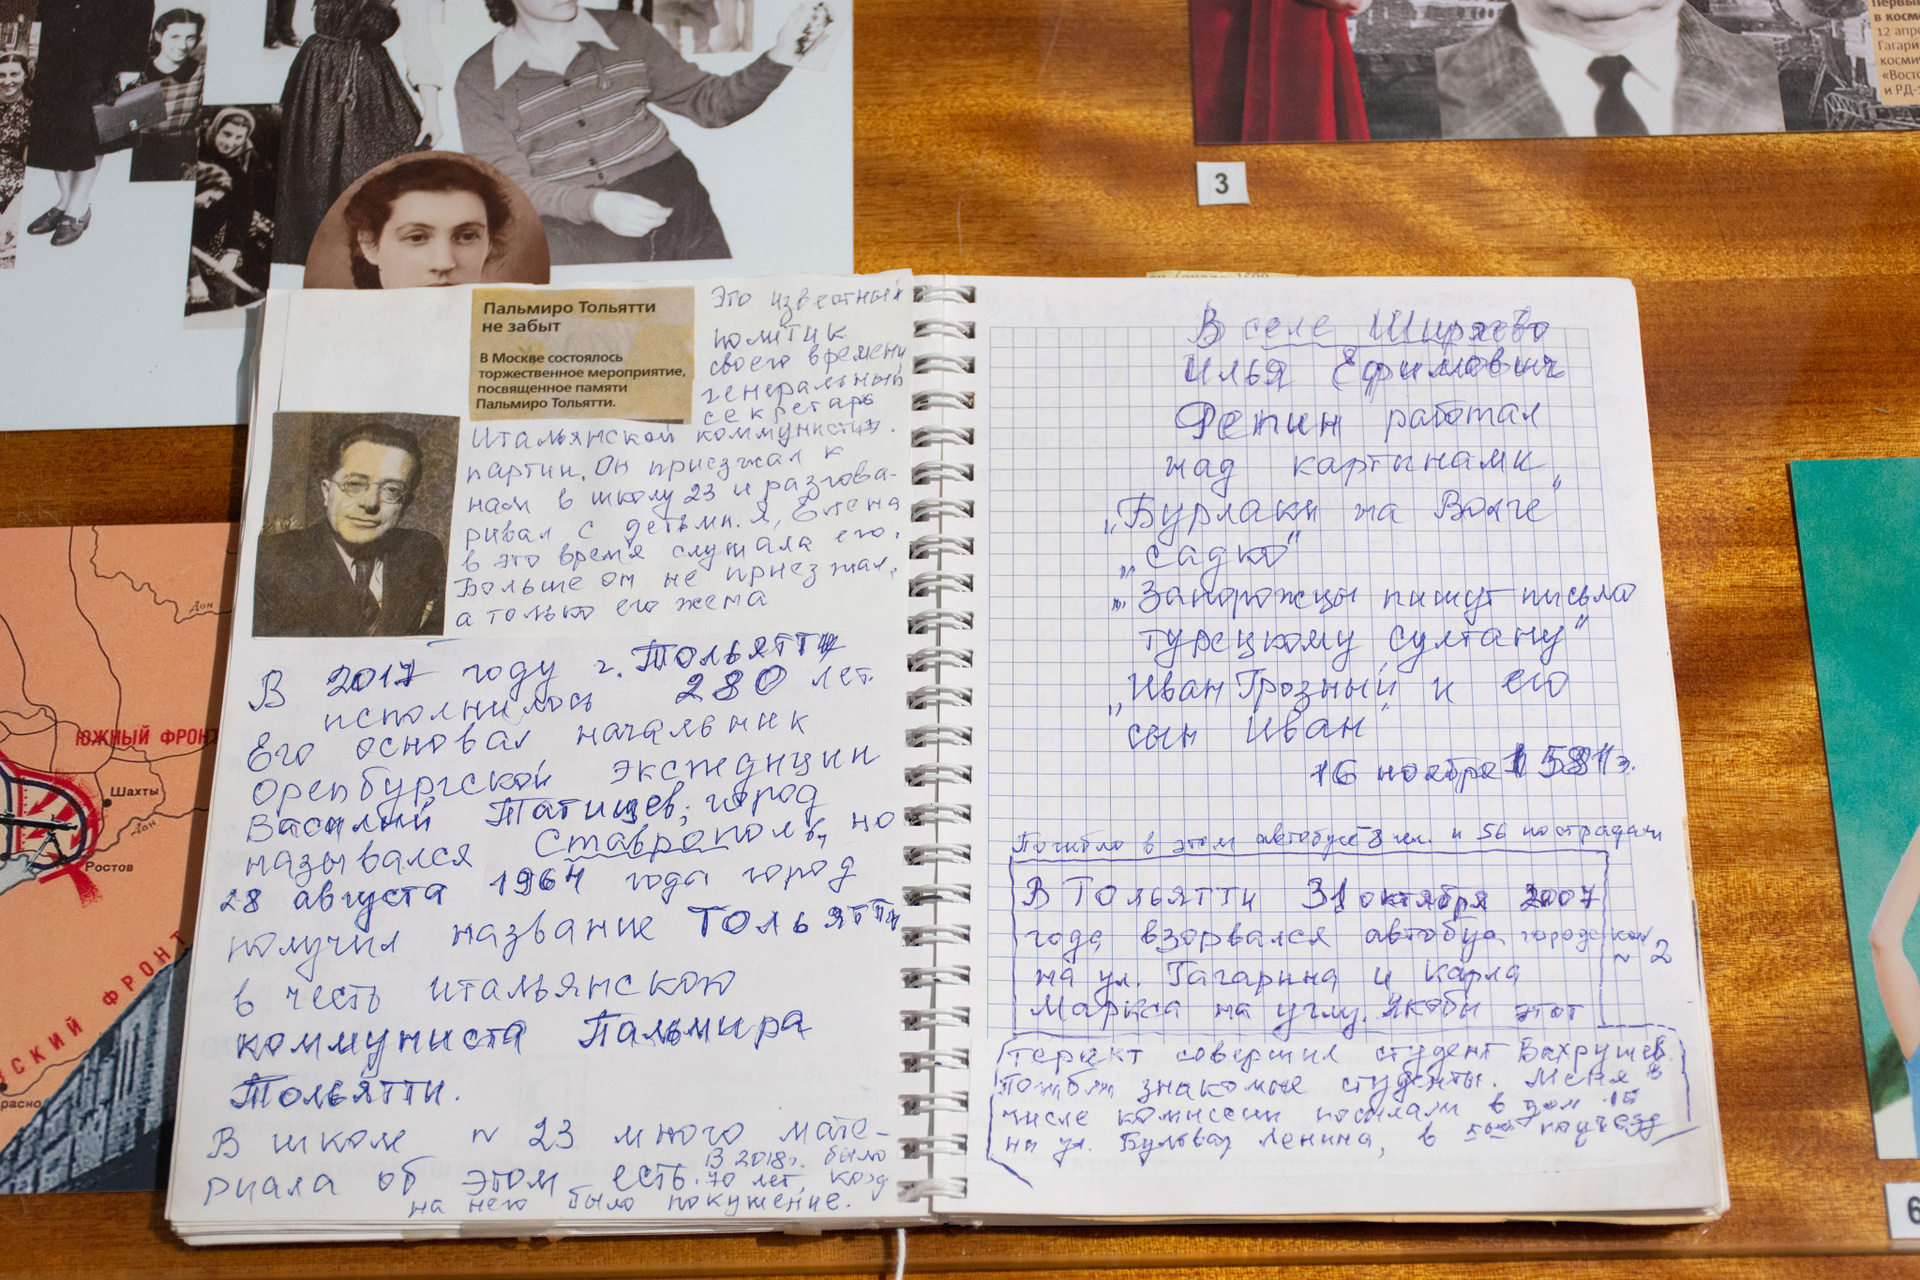 Первый
в косм
12 апре
Гагари
космич
«Восто
и РД-
3
Пальмиро Тольятти
не забыт
В Москве состоялось
торжественное мероприятие,
посвященное памяти
Пальмиро Тольятти.
Это известный
политик
своего времени
генеральный
секретарь
Итальянской коммунистич.
партии. Он приезжал к
нам в школу 23 и разгова-
ривал с детьми. Я, Елена
в это время слушала его.
Больше он не приезжал,
а только его жена
В 2017 году г. Тольятти
исполнилось 280 лет.
Его основал начальник
Оренбургской экспедиции
Василий Татищев, город
назывался Ставрополь, но
28 августа 1964 года город
получил название Тольятти
в честь итальянского
коммуниста Пальмира
Тольятти.
В школе № 23 много мате-
риала об этом есть. В 2018г. было
70 лет, когд
на него было покушение.
В селе Ширяево
Илья Ефимович
Репин работал
над картинами
„Бурлаки на Волге"
„Садко"
„Запорожцы пишут письмо
турецкому султану"
„Иван Грозный и его
сын Иван"
16 ноября 1581г.
Погибло в этом автобусе 8 чел. и 56 пострадали
В Тольятти 31 октября 2007
года взорвался автобус городской
№ 2
на ул. Гагарина и Карла
Маркса на углу. Якобы этот
теракт совершил студент Вахрушев.
Погибли знакомые студенты. Меня в
числе комиссии посылали в дом 15
на ул. Бульвар Ленина, в подъезд
ЮЖНЫЙ ФРОНТ
Дон
Шахты
Дон
Ростов
СКИЙ ФРОНТ
расно
6